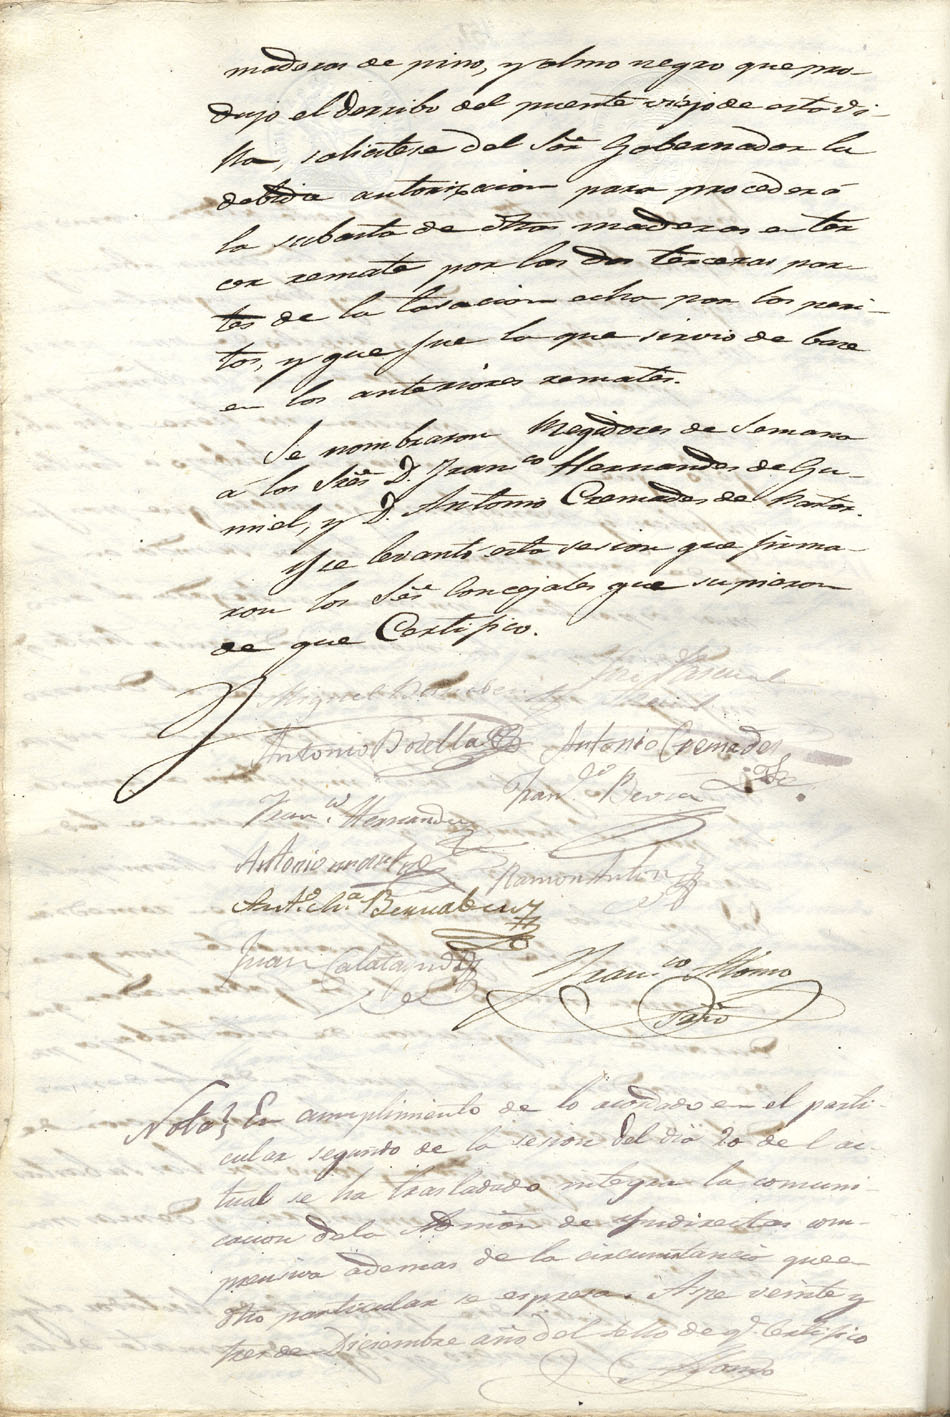 maderas de pino, y olmo negro que pro-
dujo el derribo del puente viejo de esta vi-
lla, solicitese del Sõr Gobernador la
debida autorizacion para proceder á
la subasta de dh̃as maderas en ter
cer remate por las dos terceras par-
tes de la tasacion echa por los peri-
tos, y que fue la que sirvio de base
en los anteriores remates.
Se nombraron Regidores de Semana
á los Sres D. Franco Hernandes de Gu-
miel, y D. Antonio Cremades de Pastor.
Y se levantó esta sesion que firma-
ron los Ses Concejales que supieron
de que Certifico.
Jose Pascual
Miguel
Antonio Botella Antonio Cremades
Franco Hernandez
Ramon Anton
Anto Ma Bernabeu
Juan Calatayud
Franco Alonso
Srio
Nota } En cumplimiento de lo acordado en el parti-
cular segundo de la sesion del dia 20 de l ac-
tual se ha trasladado integra la comuni-
cacion dela Admon de Yndirectas com-
prensiva ademas de la circunstancia que en
dho particular se espresa. Aspe veinte y
tres de Diciembre año del sello de q. Certifico
Alonso